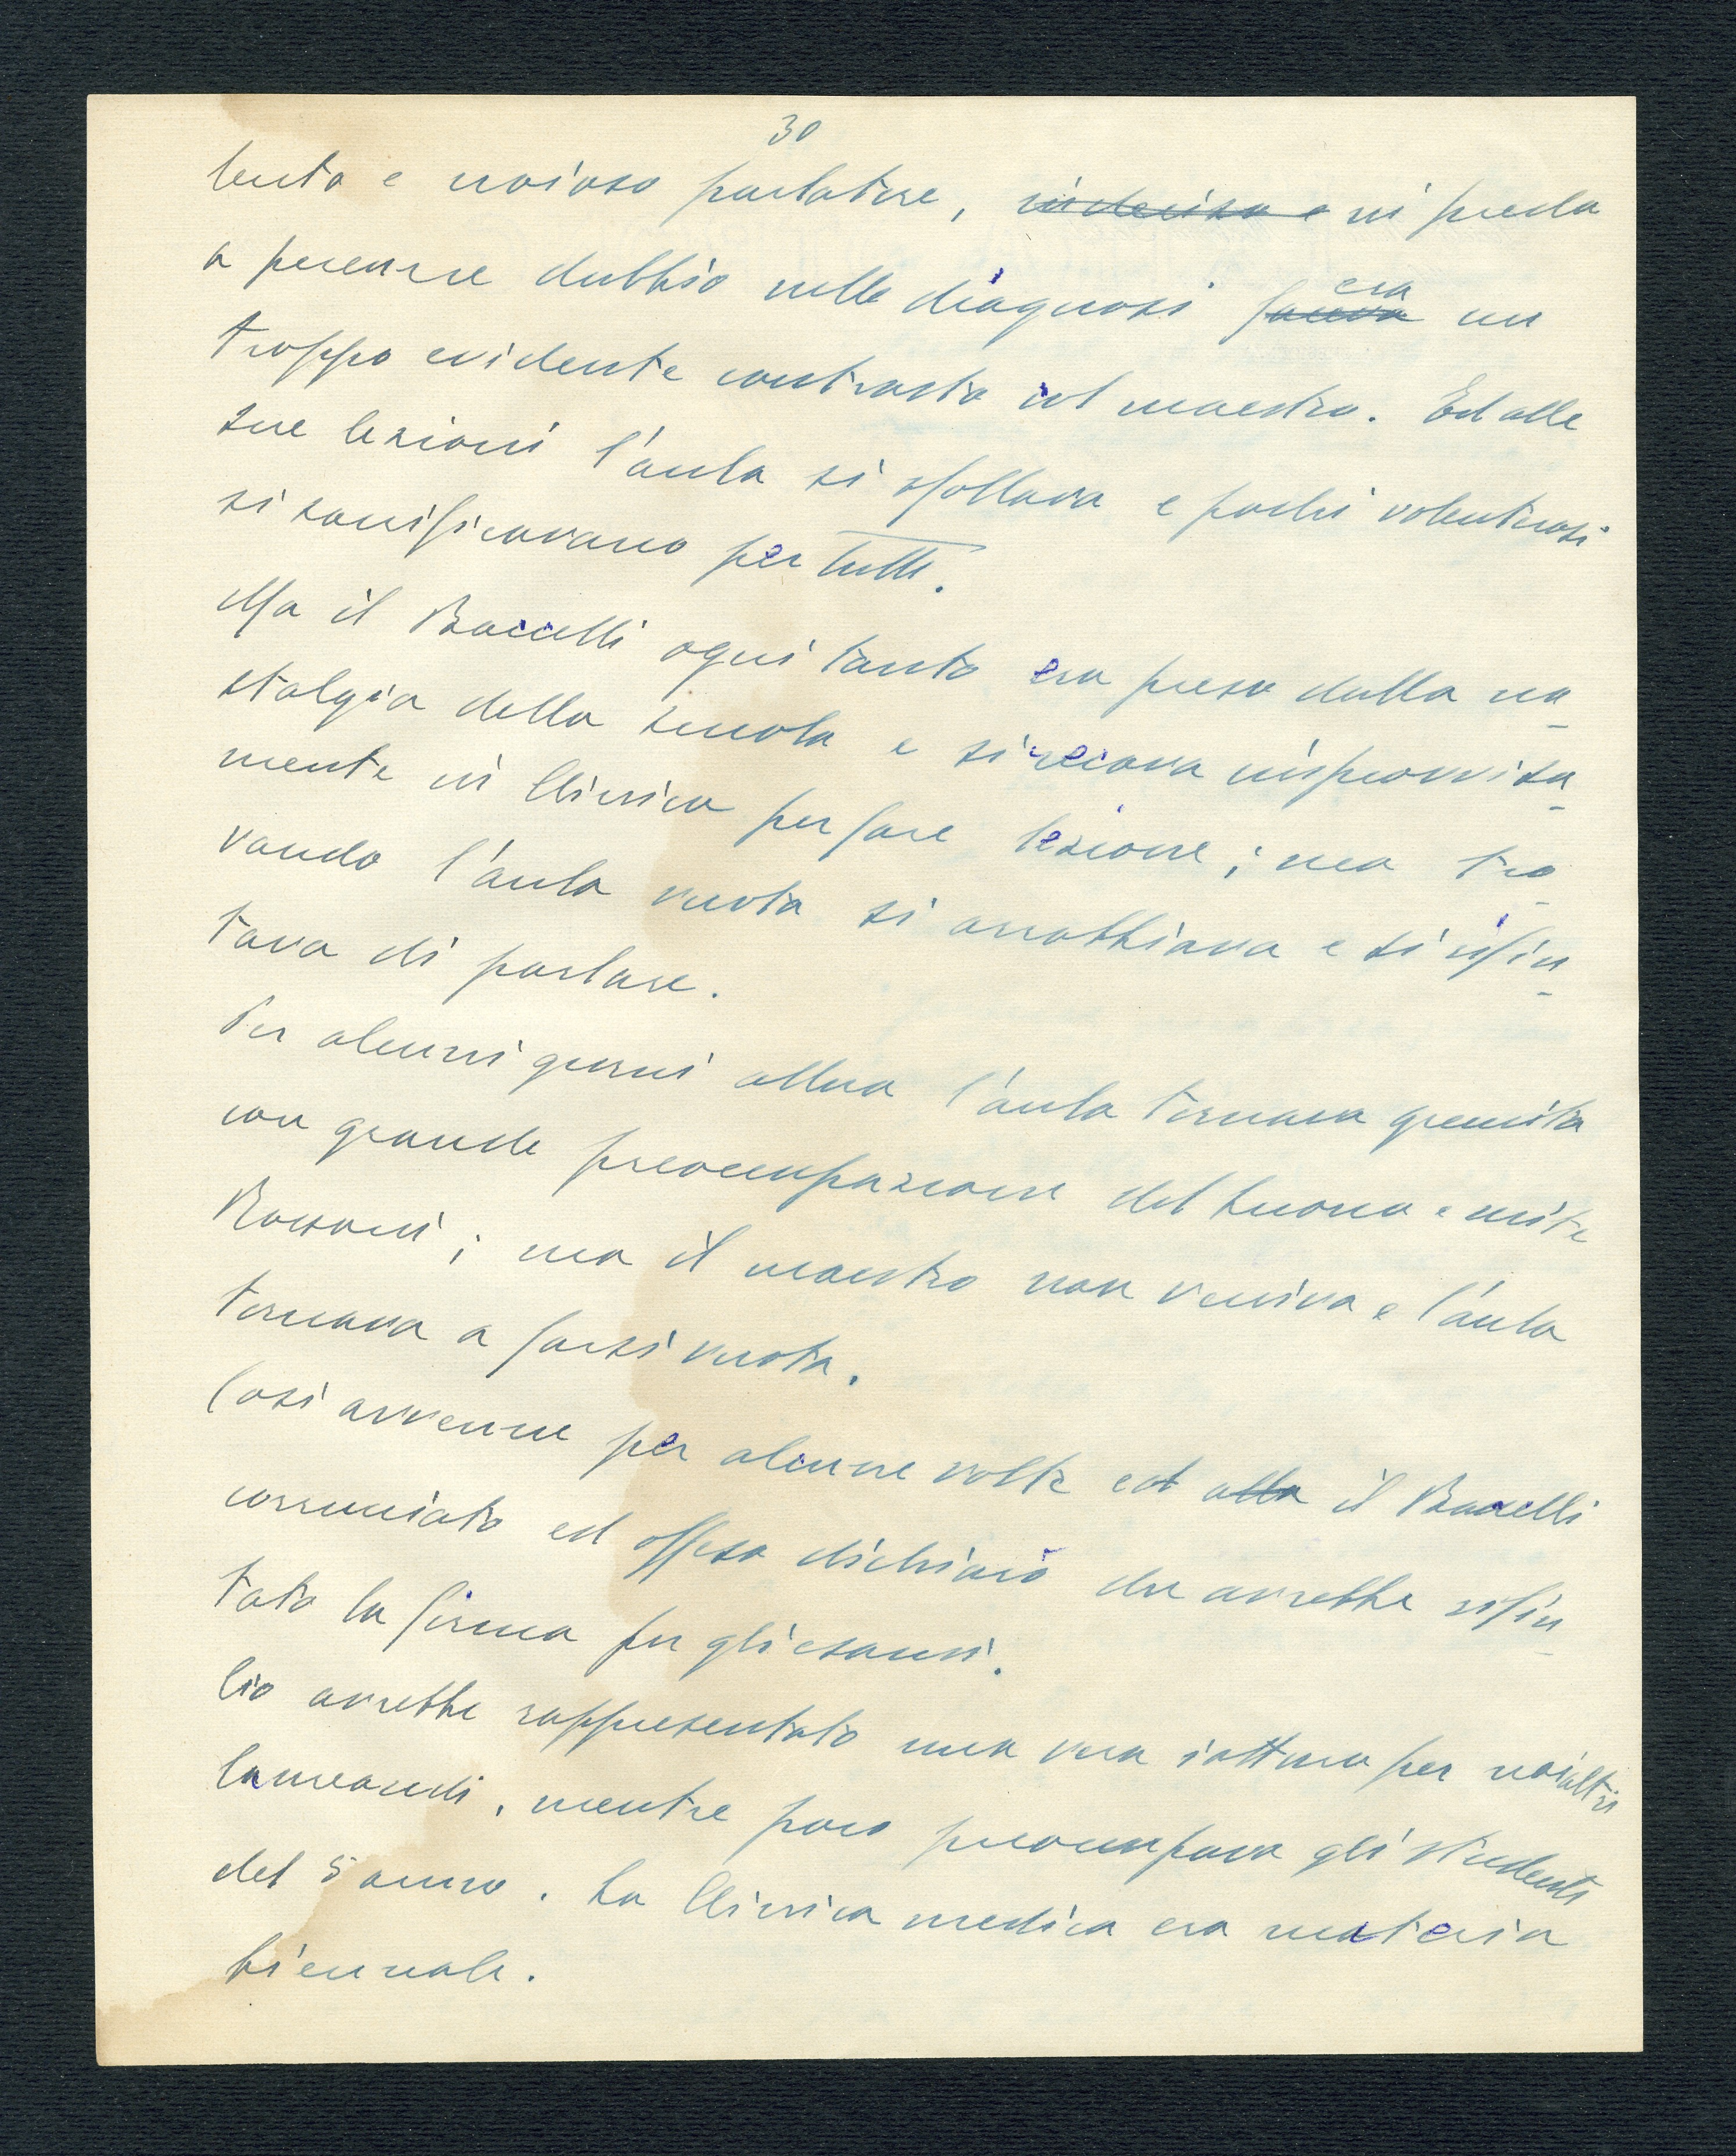 30
lento e noioso parlatore, indeciso e in preda
a perenne dubbio nelle diagnosi faceva era un
troppo evidente contrasto col maestro. Ed alle
sue lezioni l'aula si sfollava e pochi volenterosi
si sacrificavano per tutti.
Ma il Baccelli ogni tanto era preso dalla no_
stalgia della scuola e si recava improvvisa_
mente in Clinica per fare lezione; ma tro_
vando l'aula vuota si arrabbiava e si rifiu_
tava di parlare.
Per alcuni giorni allora l'aula tornava gremita
con grande preoccupazione del buono e mite
Rossoni; ma il maestro non veniva e l'aula
tornava a farsi vuota.
Così avvenne per alcune volte ed alla il Baccelli
corrucciato ed offeso dichiarò che avrebbe rifiu_
tato la firma per gli esami.
Ciò avrebbe rappresentato una vera iattura per noialtri
laureandi, mentre poco preoccupava gli studenti
del 5 anno. La Clinica medica era materia
biennale.